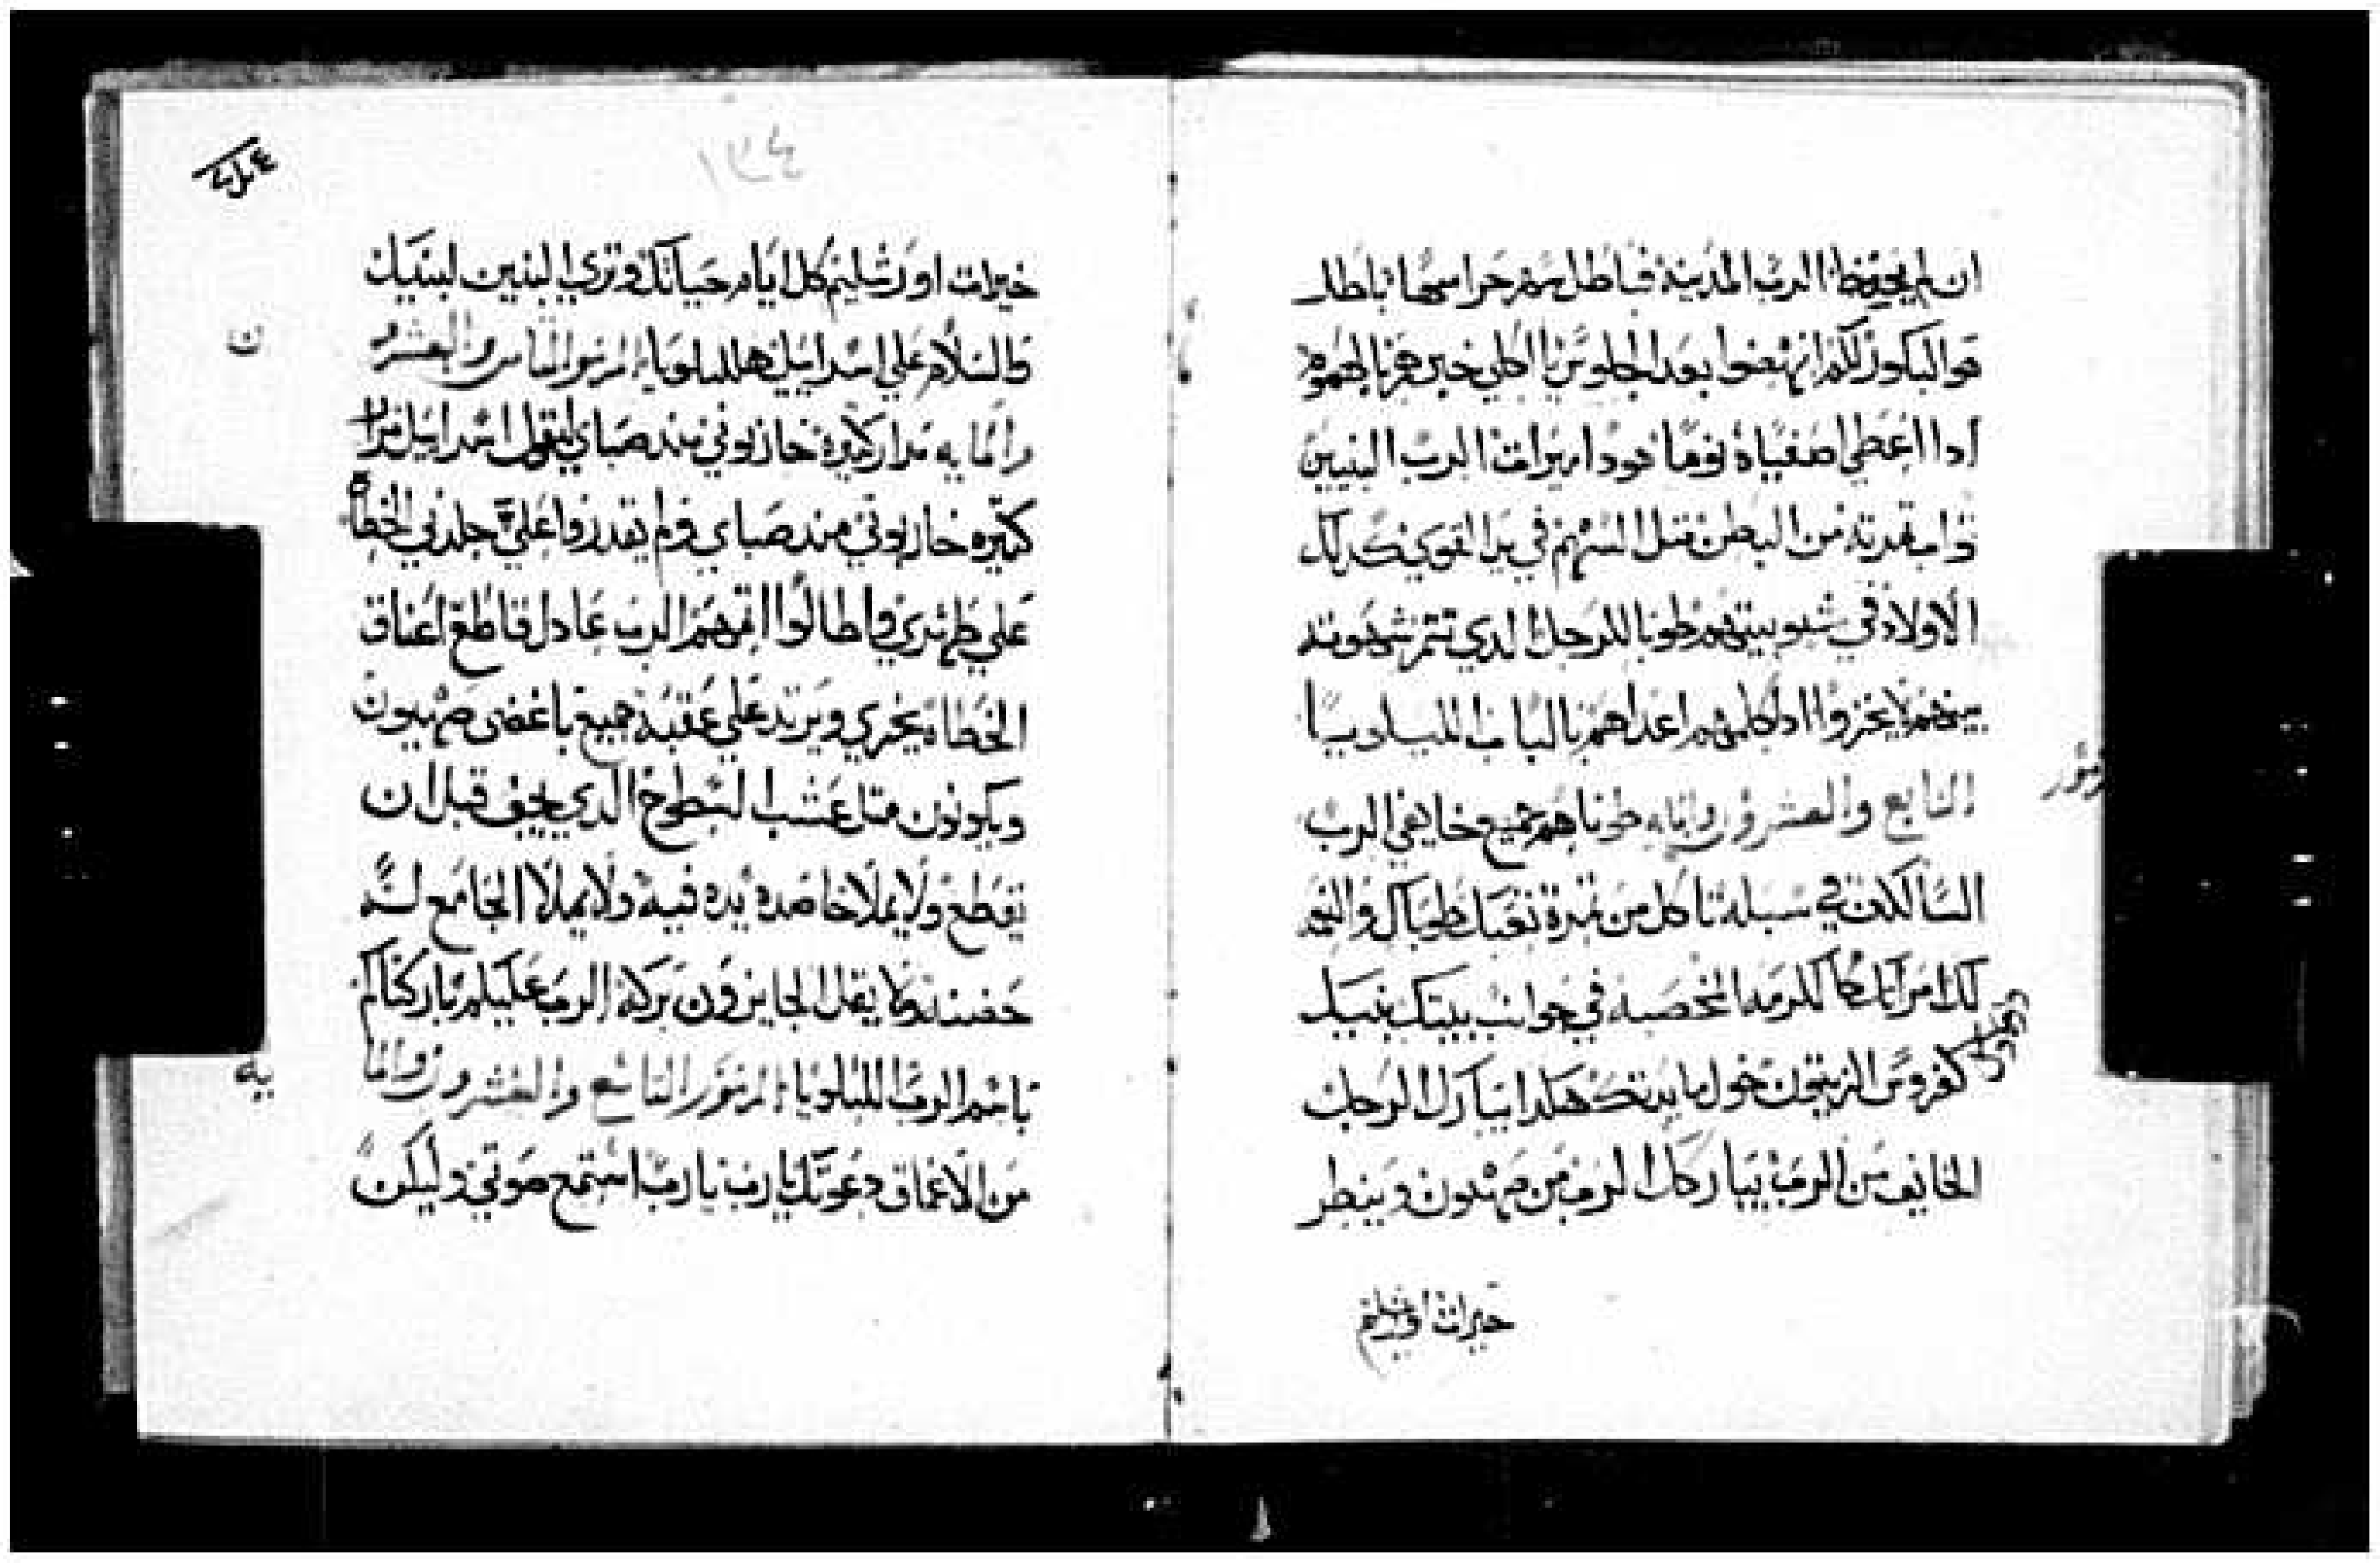 ان لم يحفظ الرب المدينة فباطل سهر حراسها باطل
هو البكور لكم انهضوا بعد الجلوس يا اكلي خبز هز بالهموم
ادا اعطي اصفياه نوما هودا ميرات الرب البنين
البطن متل السهم في يد القوي كدلك
الاولاد في شبوبيتهم طوبا للرجل الدي تتم شهوته
بينهم لا يخزوا ادا كلموا اعداهم بالباب الليلويا
السابع والعشرون والمايه طوباهم جميع خايفي الرب
السالكين في سبله تاكل من تمرة تعبك طوباك والنعمه
لك امراتك كالكرمه المخصبه في جوانب بيتك بنيك
كغروس الزيتون حول مايدتك هكدا يبارك الرجل
الخايف من الرب يباركك الرب من صهيون وينظر
خيرات اورشليم
١٣٤
خيرات اورشليم كل ايام حياتك وتري البنين لبنيك
والسلام علي اسراييل هلليلويا المزمور التامن والعشرو
ن
والمايه مرار كتيرة حاربوني مند صباي ليقل اسراييل مرارا
كتيره حاربوني مند صباي ولم يقدروا علي جلدني الخطاه
علي ظهري واطالوا اتمهم الرب عادل قاطع اعناق
الخطاه يخزي ويرتد علي عقبه جميع باغضي صهيون
ويكونون متل عشب السطوح الدي يجف قبل ان
يقطع ولا يملا حاصده يده فيه ولا يملا الجامع له
حضنه ولا يقل الجايزون بركة الرب عليكم باركناكم
باسم الرب الليلويا المزمور التاسع والعشرون والما
يه
من الاعماق دعوتك يارب يارب استمع صوتي وليكن